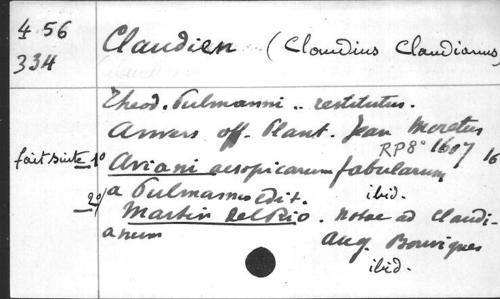 456
334
Claudien (Claudius Claudianus)
Theod. Pulmanni .. restitutus.
Anvers off. Plant. Jean Moretus
RP8° 1607 16
fait suite 1° Aviani aesopicarum fabularum
a Pulmanno edit. ibid.
2° Martin Delrio. notae ad Claudi-
anum Aug. Bouvignes
ibid.